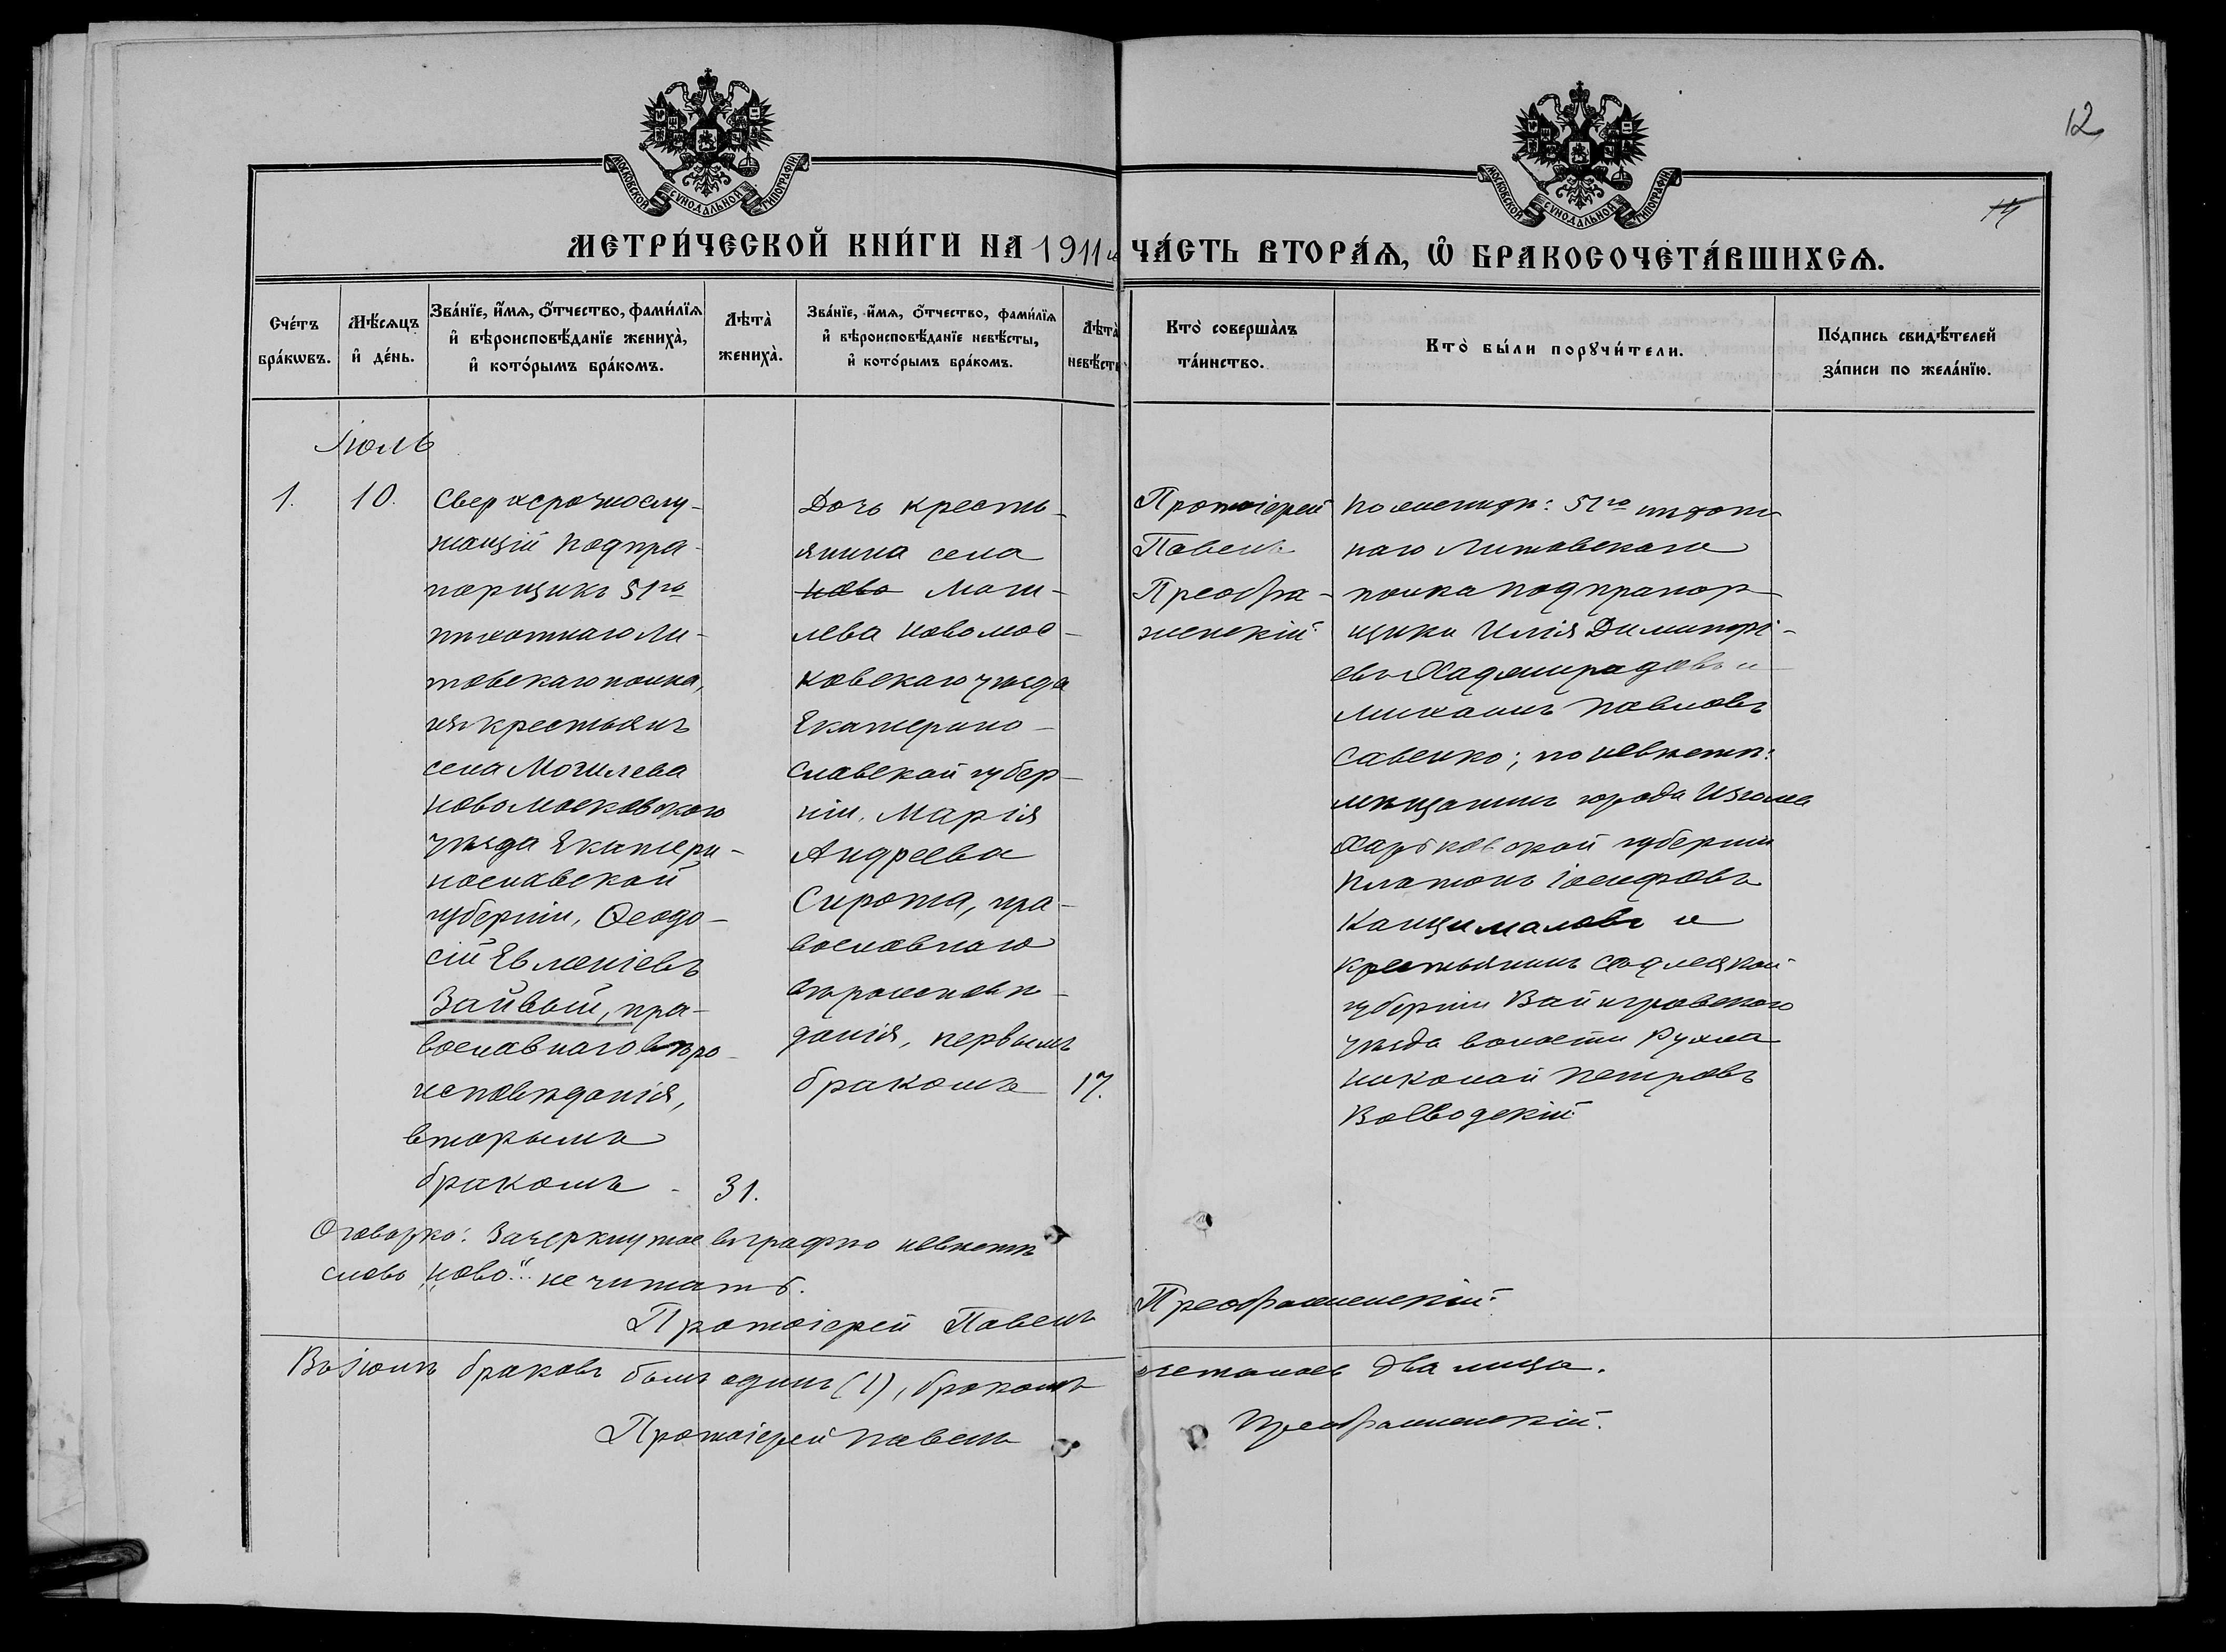 12
14
МОСКОВСКОЙ СУНОДАЛЬНОЙ ТИПОГРАФІИ
МОСКОВСКОЙ СУНОДАЛЬНОЙ ТИПОГРАФІИ
МЕТРИ́ЧЕСКОЙ КНИ́ГИ НА 1911 г. ЧА́СТЬ ВТОРА́Ѧ, Ѡ҆ БРАКОСОЧЕТА́ВШИХСѦ.
Сче́тъ бра́кѡвъ.
Мѣ́сѧцъ и҆ де́нь.
Зва́нїе, и҆́мѧ, ѻ҆́тчество, фами́лїѧ и҆ вѣроисповѣ́данїе женихà, и҆ кото́рымъ бра́комъ.
Лѣтà женихà.
Зва́нїе, и҆́мѧ, ѻ҆́тчество, фами́лїѧ и҆ вѣроисповѣ́данїе невѣ́сты, и҆ кото́рымъ бра́комъ.
Лѣтà невѣ́сты
Кто̀ соверша̀лъ та́инство.
Кто̀ бы́ли порꙋчи́тели.
По́дпись свидѣ́телей за́писи по жела́нїю.
Іюль
1.
10.
Сверхсрочнослу-
жащій подпра-
порщикъ 51го
пѣхотнаго Ли-
товскаго полка,
изъ крестьянъ
села Могилева
Новомосковскаго
уѣзда Екатери-
нославской
губерніи, Ѳеодо-
сій Евменіевъ
Зайвый, пра-
вославнаго вѣро-
исповѣданія,
вторымъ
бракомъ - 31.
Дочь крестья-
янина села
Ново Моги-
лева Новомос-
ковскаго уѣзда
Екатерино-
славской губер-
ніи, Марія
Андреева
Сирота, пра-
вославнаго
вѣроисповѣ-
данія, первымъ
бракомъ 17.
Протоіерей
Павелъ
Преобра-
женскій
По женихѣ: 51го пѣхот-
наго Литовскаго
полка подпрапор-
щики Илія Димитрі-
евъ Хаджирадовъ и
Михаилъ Павловъ
Савенко; по невѣстѣ:
мѣщанинъ города Изюма
Харьковской губерніи
Платонъ Іосифовъ
Канцималовъ и
крестьянинъ Сѣдлецкой
губерніи Венгровскаго
уѣзда волости Рухна
Николай Петровъ
Воеводскій
Оговорка: Зачеркнутое въ графѣ невѣстѣ
слово „Ново“ не читать.
Протоіерей Павелъ Преображенскій.
Въ Іюлѣ браковъ былъ одинъ (1), бракомъ сочеталось два лица.
Протоіерей Павелъ Преображенскій.